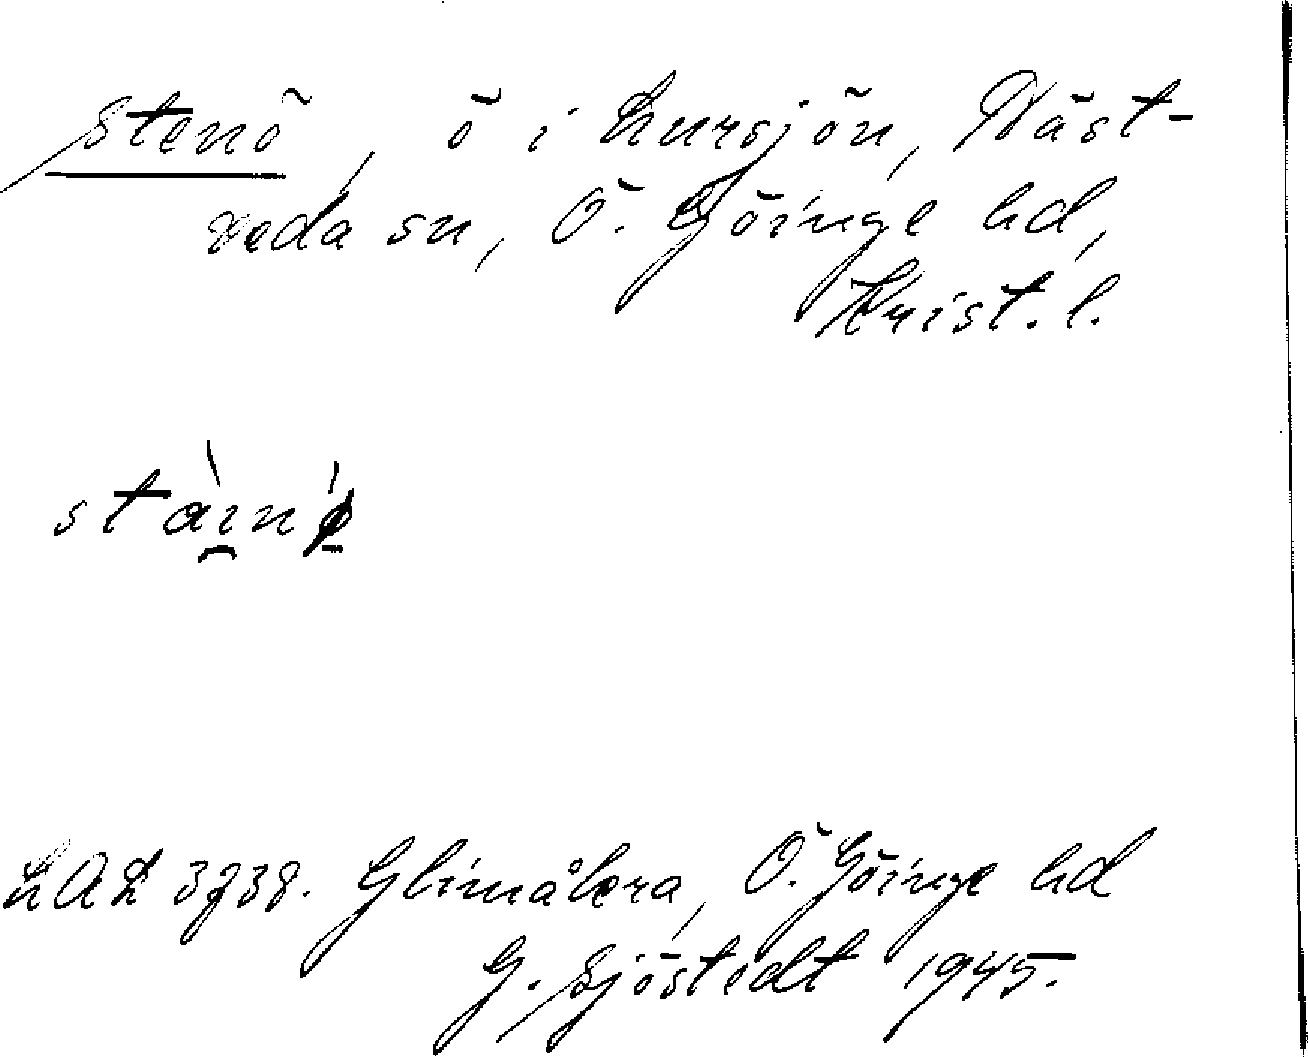 Stenö, ö i Lursjön, Häst-
veda sn, Ö. Göinge hd,
Krist. l.
LAL 3738. Glimåkra, Ö. Göinge hd
G. Sjöstedt 1945.